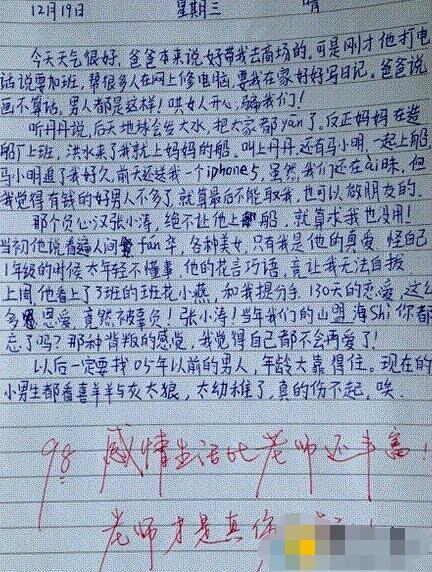 12月19日 星期三 晴
今天天气很好，爸爸本来说好带我去商场的。可是刚才他打电
话说要加班，帮很多人在网上修电脑，要我在家好好写日记。爸爸说
画不算话，男人都是这样！哄女人开心，骗我们！
听丹丹说，后天地球会发大水，把大家都yān了。反正妈妈在造
船厂上班，洪水来了我就上妈妈的船。叫上丹丹，还有马小明，一起上船，
马小明追了我好久，前天还送我一个iphone5，虽然我们还在ài昧，但
我觉得有钱的好男人不多了，就算最后不能取我，也可以做朋友的。
那个负心汉张小涛，绝不让他上船，就算求我也没用！
当初他说看遍人间fán华，各种美女，只有我是他的真爱，怪自己
1年级的时候太年轻不懂事，他的花言巧语，竟让我无法自拔，
上周他看上了3班的班花小燕，和我提分手，130天的恋爱，这么
多恩爱，竟然被辜负！张小涛！当年我们的山盟海Shi你都
忘了吗？那种背叛的感觉，我觉得自己都不会再爱了！
以后一定要找05年以前的男人，年龄大靠得住。现在的
小男生都看喜羊羊与灰太狼，太幼稚了，真的伤不起，唉。
98 感情生活比老师还丰富！
老师才是真伤